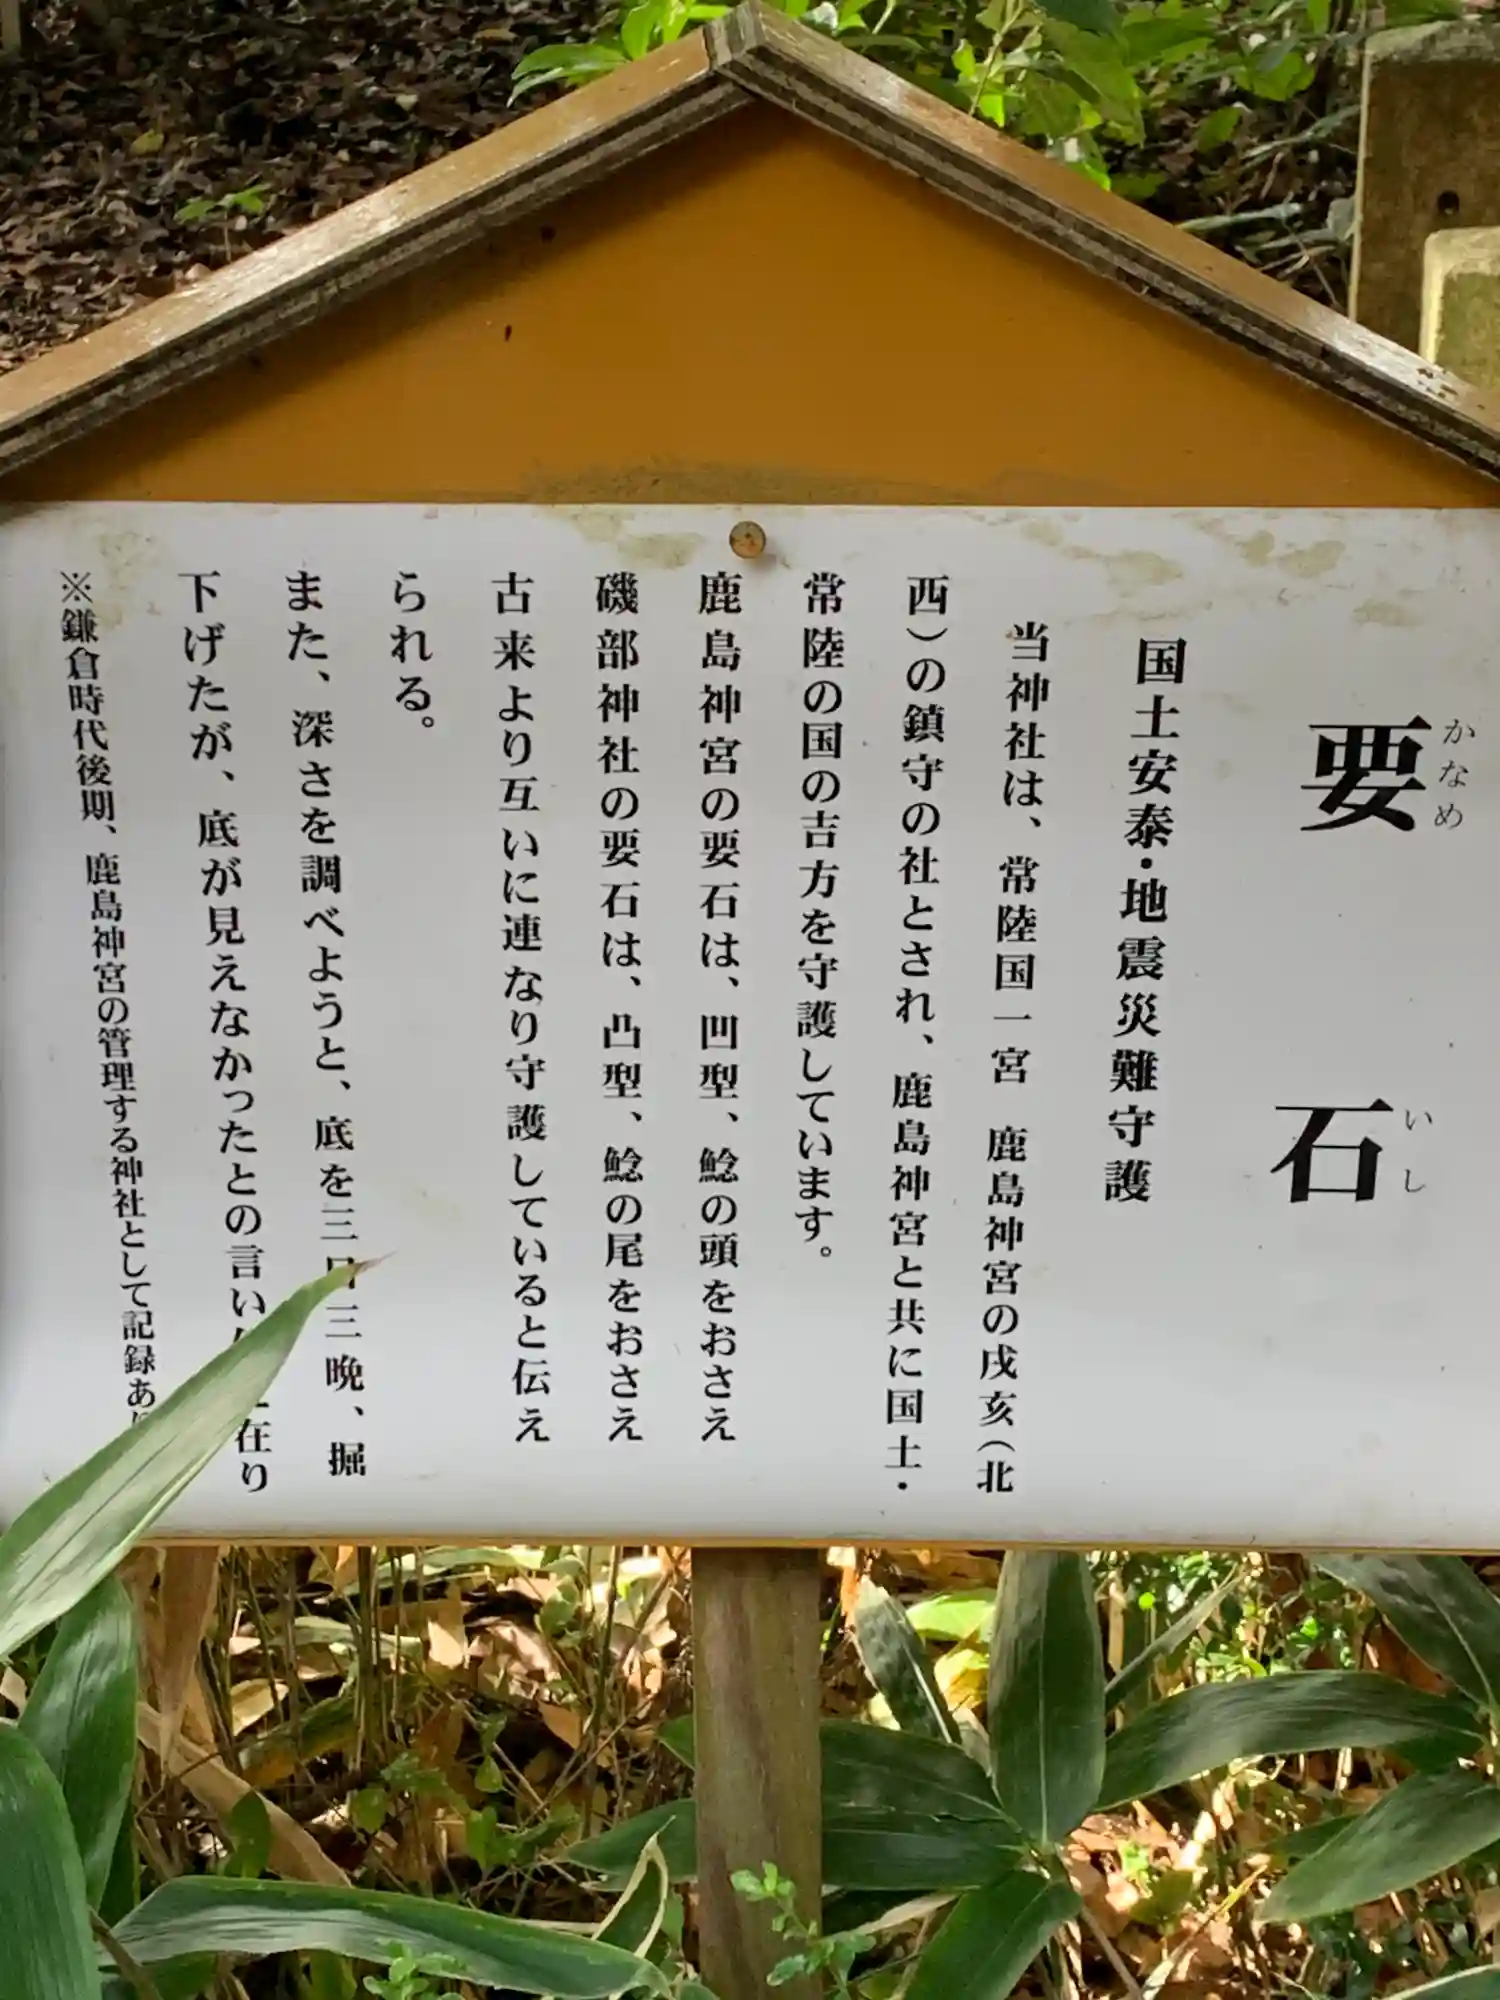 要石
かなめ いし
国土安泰・地震災難守護
当神社は、常陸国一宮 鹿島神宮の戌亥(北
西)の鎮守の社とされ、鹿島神宮と共に国土・
常陸の国の吉方を守護しています。
鹿島神宮の要石は、凹型、鯰の頭をおさえ
磯部神社の要石は、凸型、鯰の尾をおさえ
古来より互いに連なり守護していると伝え
られる。
また、深さを調べようと、底を三日三晩、掘
下げたが、底が見えなかったとの言い 在り
※鎌倉時代後期、鹿島神宮の管理する神社として記録あり